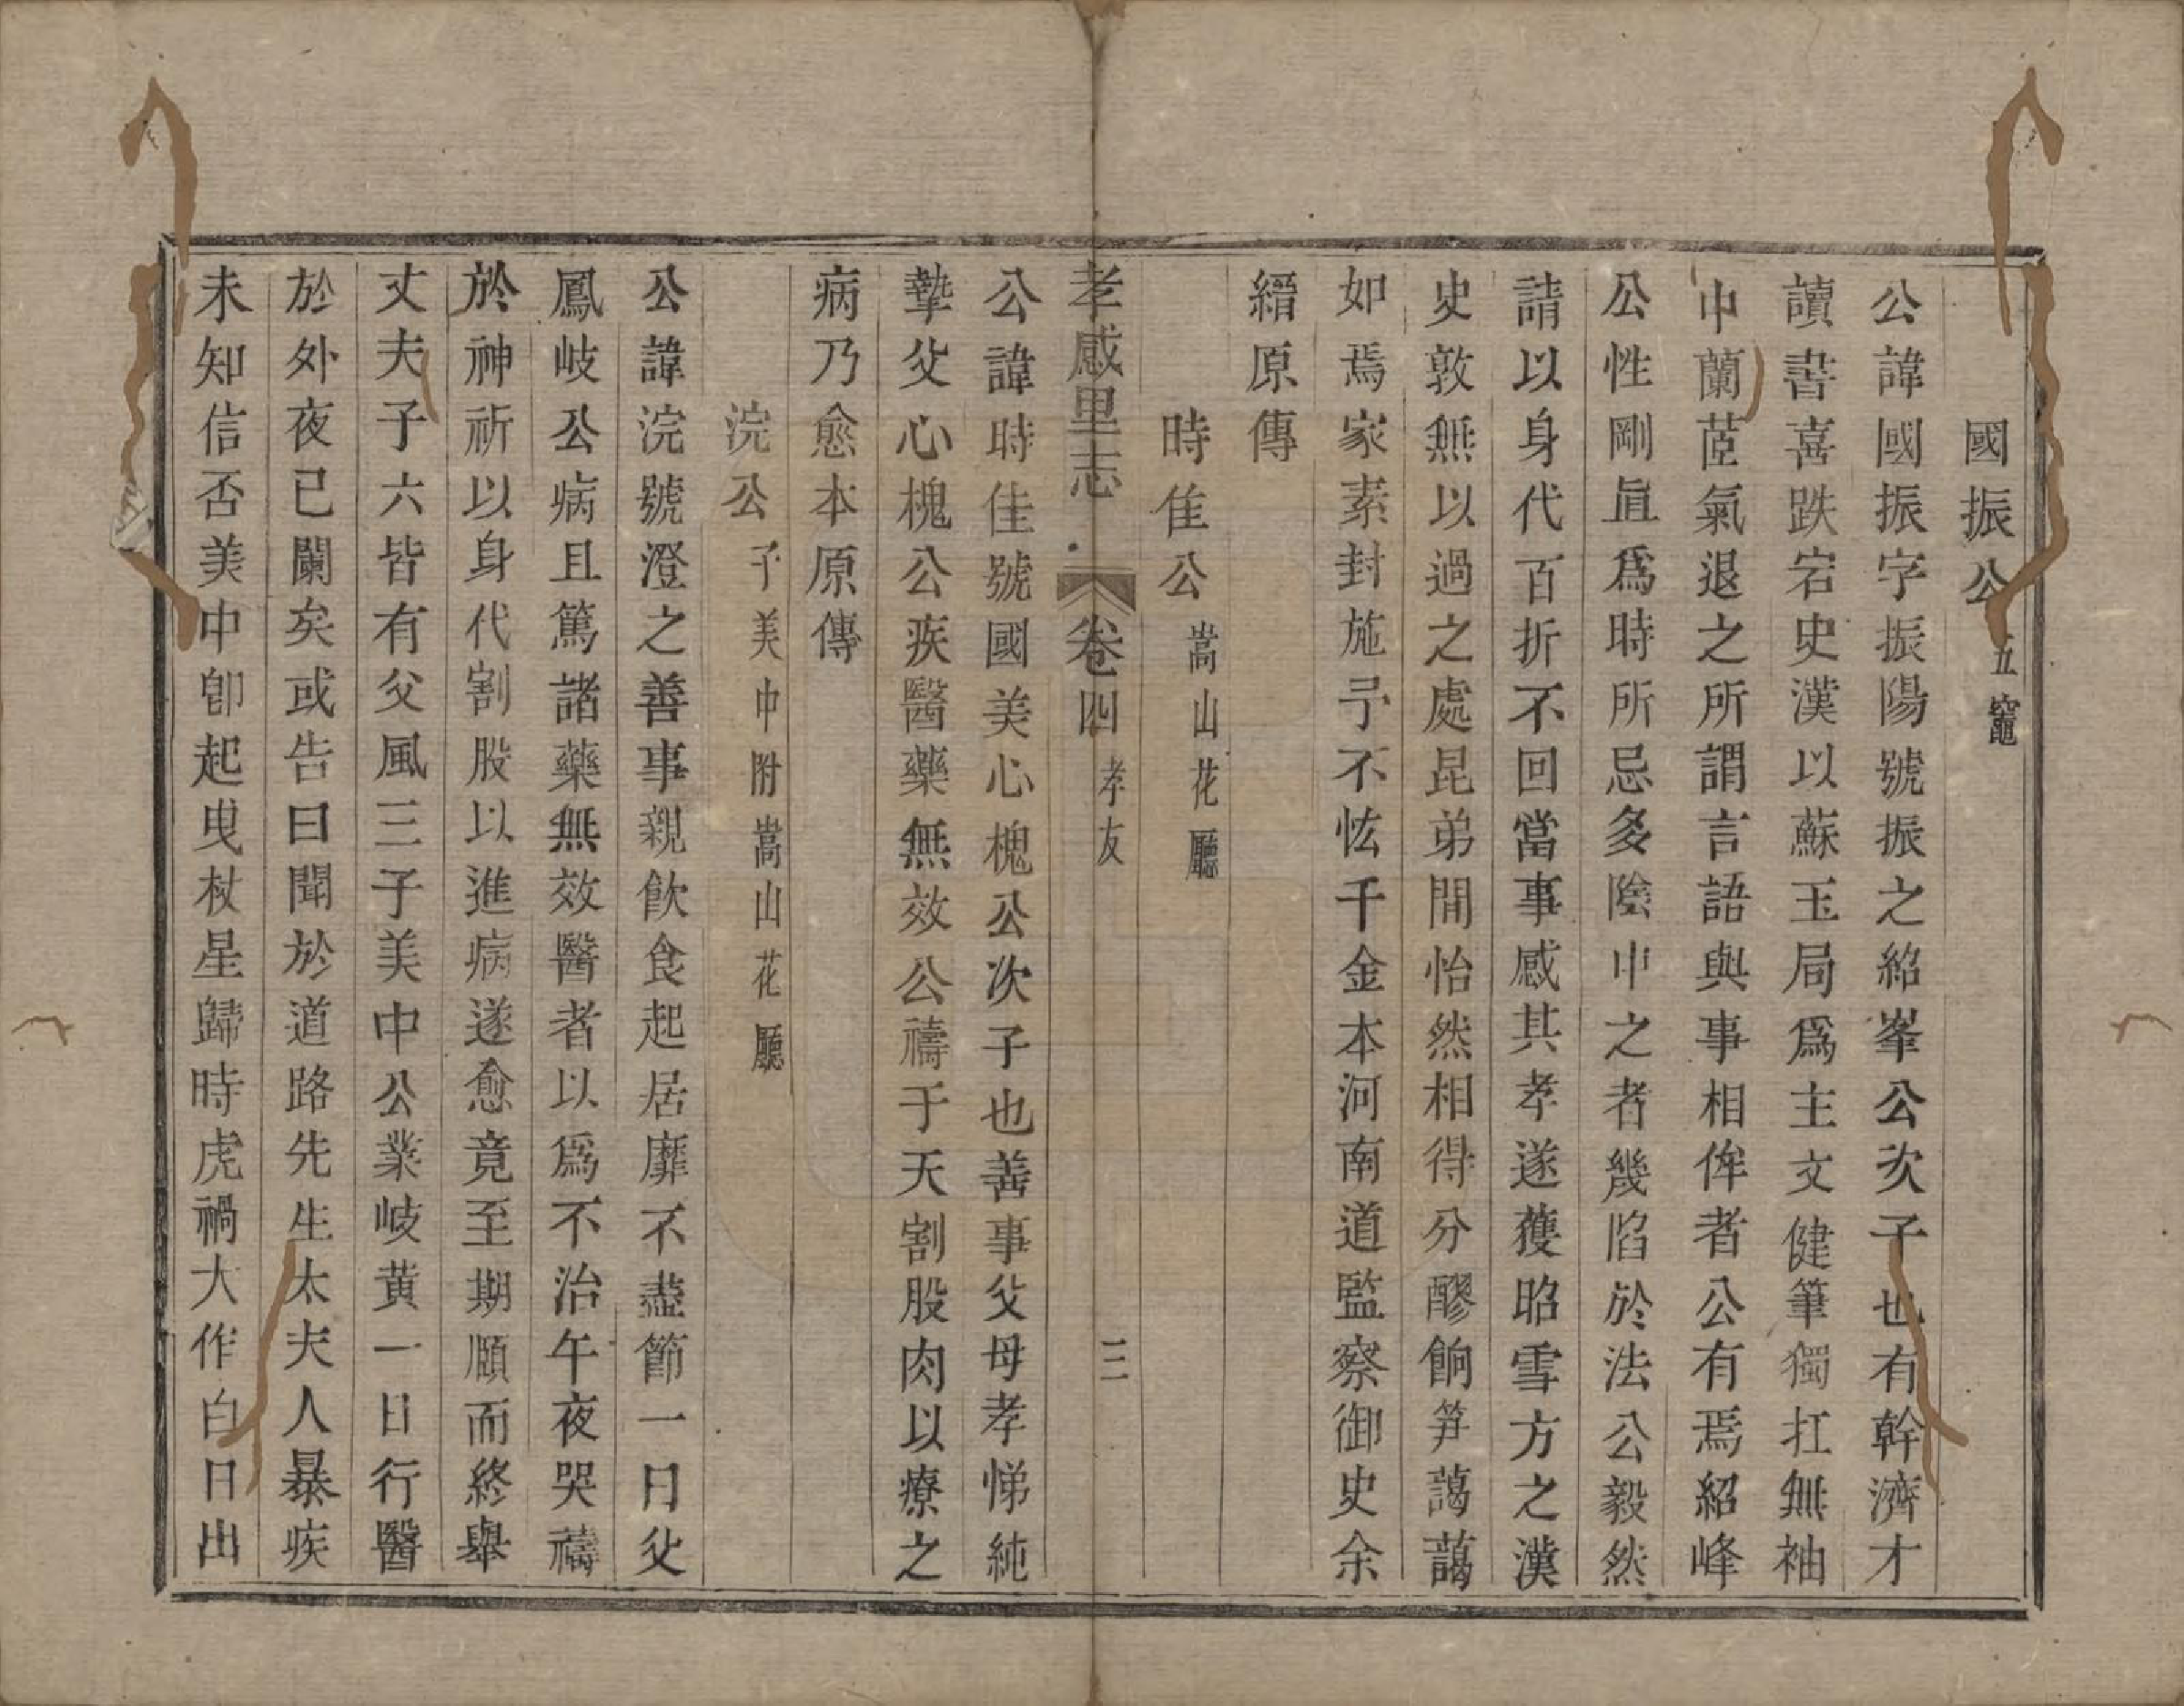 國振公 五竈
公諱國振字振陽號振之紹峯公次子也有幹濟才
讀書喜跌宕史漢以蘇玉局爲主文健筆獨扛無袖
中蘭茝氣退之所謂言語與事相侔者公有焉紹峰
公性剛直爲時所忌多陰中之者幾陷於法公毅然
請以身代百折不回當事感其孝遂獲昭雪方之漢
史敦無以過之處昆弟閒怡然相得分醪餉笋藹藹
如焉家素封施予不恡千金本河南道監察御史余
縉原傳
時佳公 嵩山花廳
孝感里志 卷四 孝友 三
公諱時佳號國美心槐公次子也善事父母孝悌純
摯父心槐公疾醫藥無效公禱于天割股肉以療之
病乃愈本原傳
浣公 子美中附嵩山花廳
公諱浣號澄之善事親飲食起居靡不盡節一日父
鳳岐公病且篤諸藥無效醫者以爲不治午夜哭禱
於神祈以身代割股以進病遂愈竟至期頤而終舉
丈夫子六皆有父風三子美中公業岐黃一日行醫
於外夜已闌矣或告曰聞於道路先生太夫人暴疾
未知信否美中卽起曳杖星歸時虎禍大作白日出